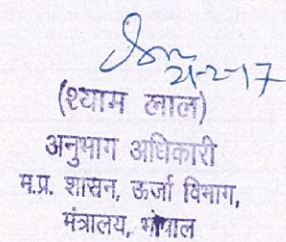 21-2-17
(श्याम लाल)
अनुभाग अधिकारी
म.प्र. शासन, ऊर्जा विभाग,
मंत्रालय, भोपाल